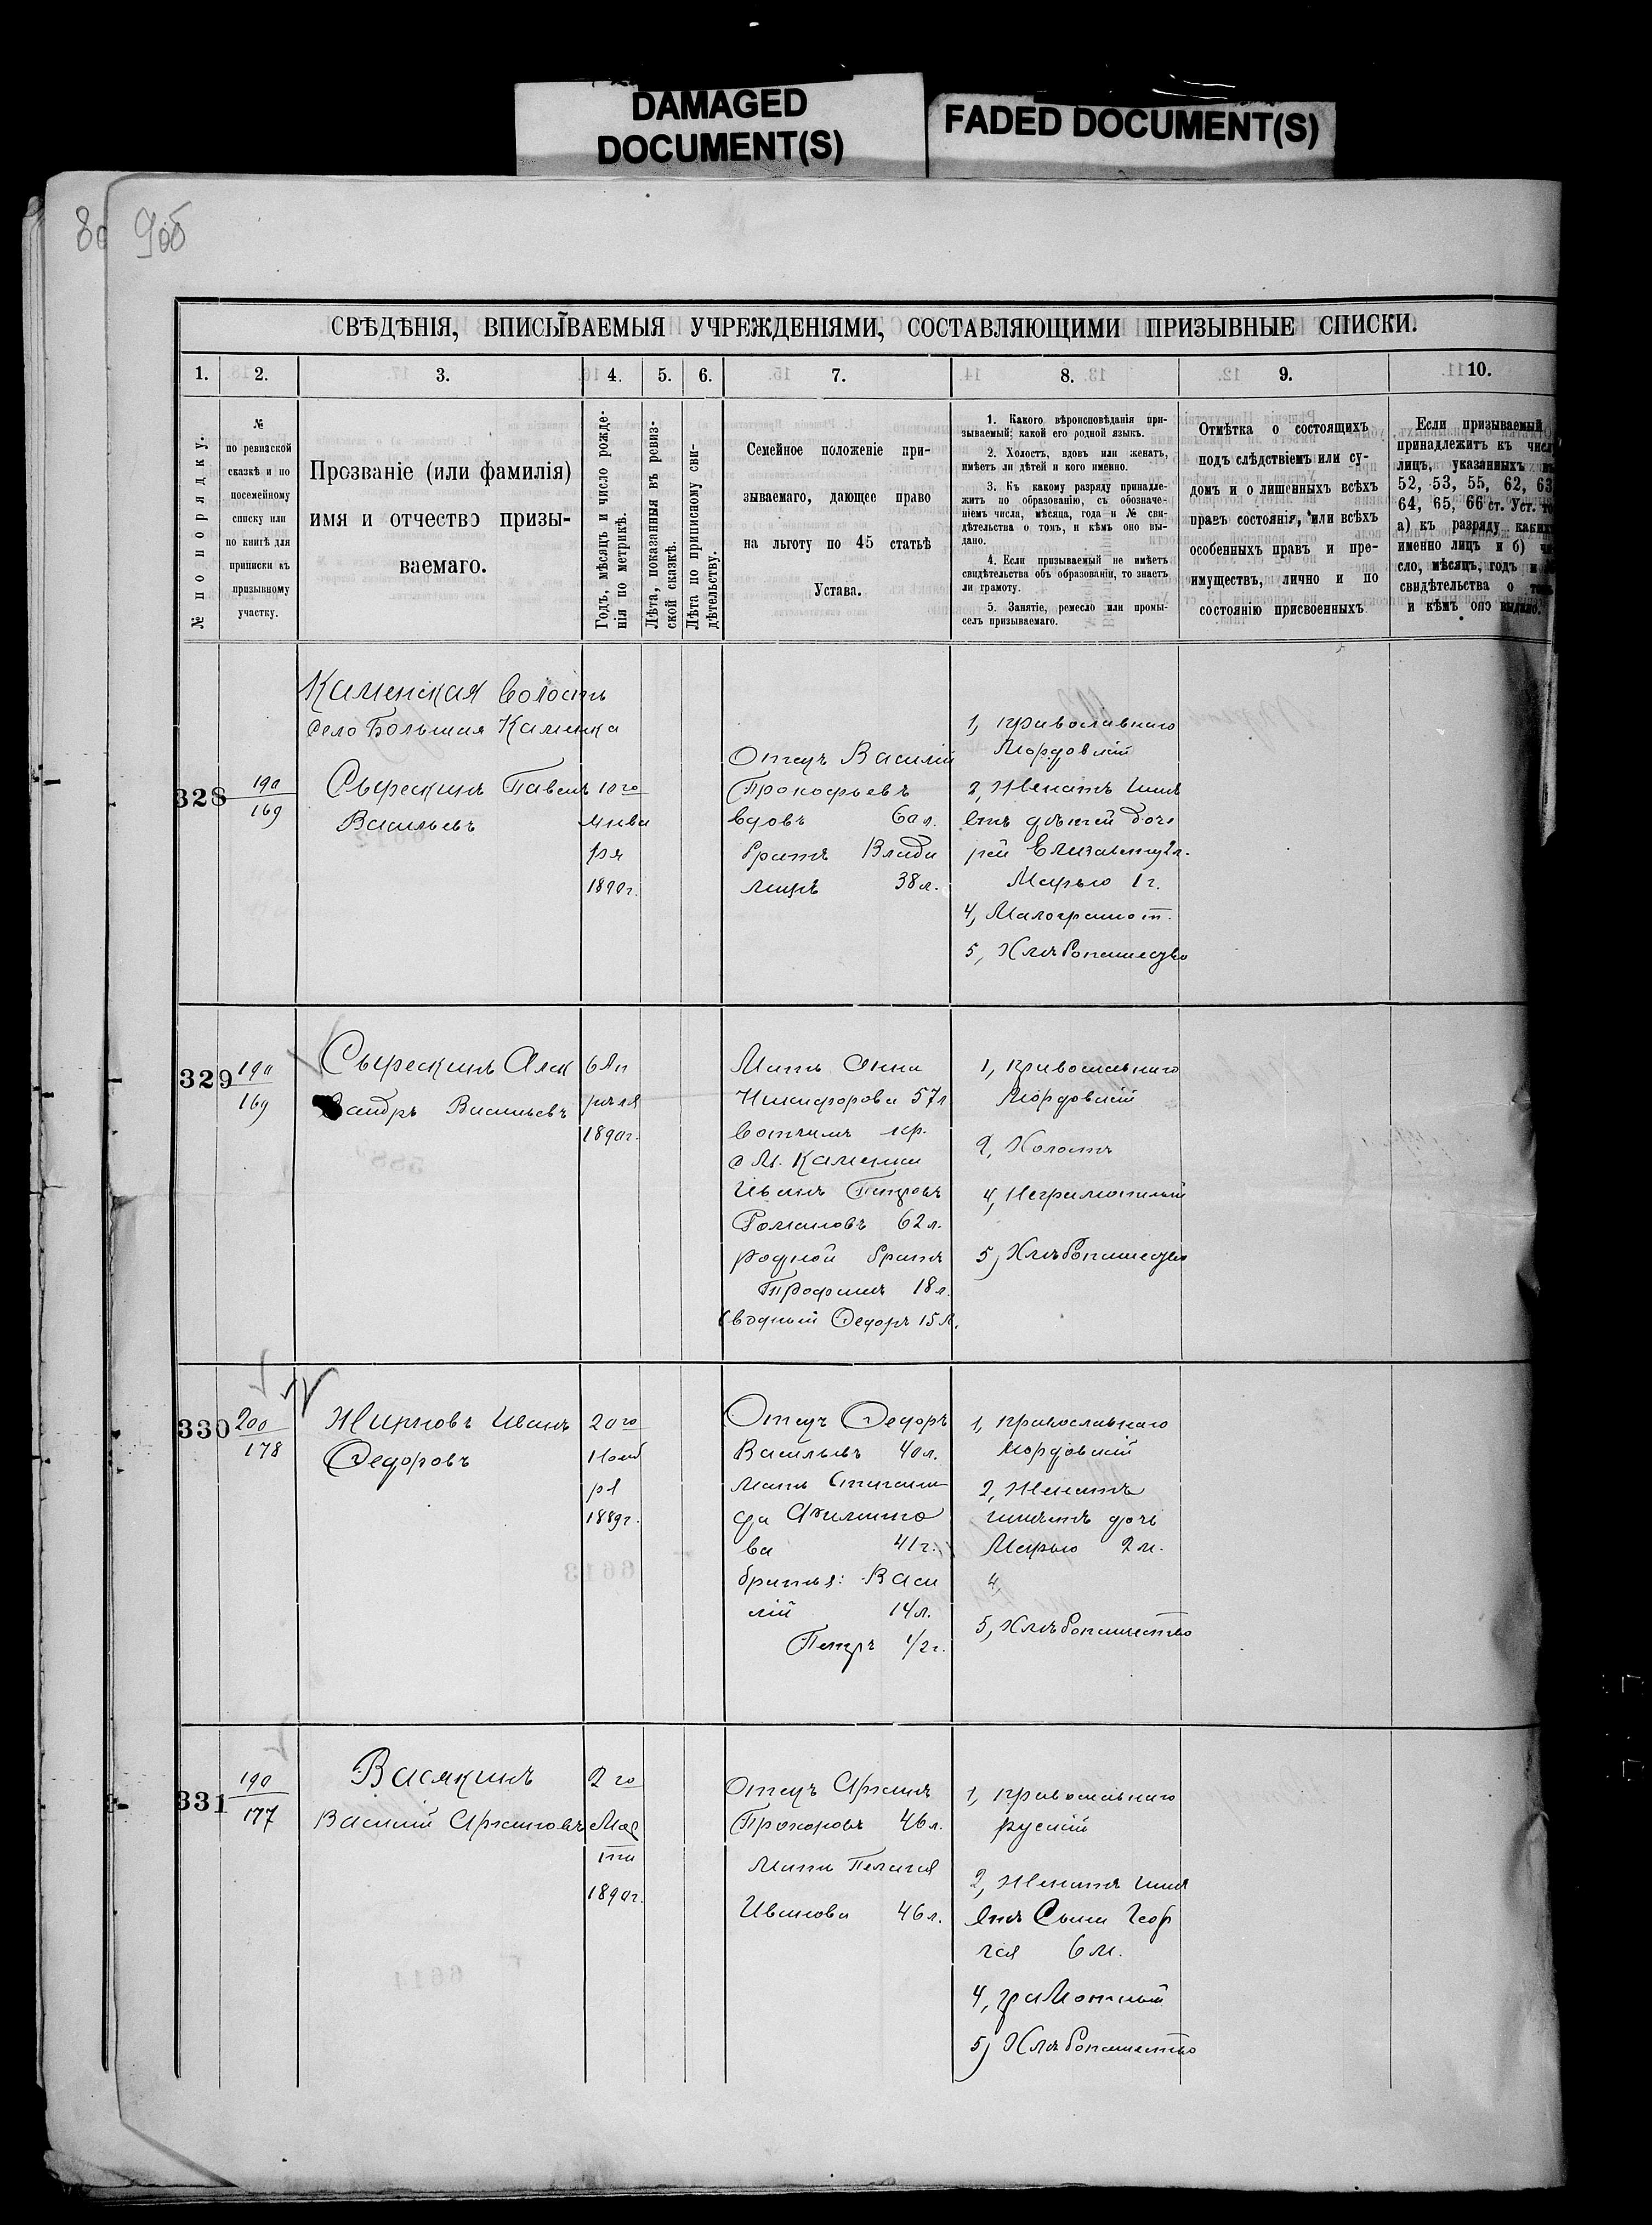 DAMAGED
DOCUMENT(S)
FADED DOCUMENT(S)
90б
СВѢДѢНІЯ, ВПИСЫВАЕМЫЯ УЧРЕЖДЕНІЯМИ, СОСТАВЛЯЮЩИМИ ПРИЗЫВНЫЕ СПИСКИ.
1. 2. 3. 4. 5. 6. 7. 8. 9. 10.
№ по порядку.
№
по ревизской
сказкѣ и по
посемейному
списку или
по книгѣ для
приписки къ
призывному
участку.
Прозваніе (или фамилія)
имя и отчество призы-
ваемаго.
Годъ, мѣсяцъ и число рожде-
нія по метрикѣ.
Лѣта, показанныя въ ревиз-
ской сказкѣ.
Лѣта по приписному сви-
дѣтельству.
Семейное положеніе при-
зываемаго, дающее право
на льготу по 45 статьѣ
Устава.
1. Какого вѣроисповѣданія при-
зываемый; какой его родной языкъ.
2. Холостъ, вдовъ или женатъ,
имѣетъ ли дѣтей и кого именно.
3. Къ какому разряду принадле-
житъ по образованію, съ обозначе-
ніемъ числа, мѣсяца, года и № сви-
дѣтельства о томъ, и кѣмъ оно вы-
дано.
4. Если призываемый не имѣетъ
свидѣтельства объ образованіи, то знаетъ
ли грамоту.
5. Занятіе, ремесло или промы-
селъ призываемаго.
Отмѣтка о состоящихъ
подъ слѣдствіемъ или су-
домъ и о лишенныхъ всѣхъ
правъ состоянія, или всѣхъ
особенныхъ правъ и пре-
имуществъ, лично и по
состоянію присвоенныхъ
Если призываемый
принадлежитъ къ числ
лицъ, указанныхъ въ
52, 53, 55, 62, 63
64, 65, 66 ст. Уст. то
а) къ разряду какихъ
именно лицъ и б) чи
сло, мѣсяцъ, годъ и
свидѣтельства о томъ
и кѣмъ оно выдано.
Каменская волость
село Большая Каменка
328
190
169
Сырескинъ Павелъ
Васильевъ
10го
Янва
ря
1890г.
Отецъ Василій
Прокофьевъ
вдовъ 60л.
братъ Влади
миръ 38л.
1, православнаго
Мордовскій
2, Женатъ имѣ
етъ дѣтей доче
рей Елизавету 2л.
Марью 1г.
4, Малограмот.
5, Хлѣбопашество
329
190
169
Сырескинъ Алек
сандръ Васильевъ
6 Ап
рѣля
1890г.
Мать Анна
Никифорова 57л
вотчимъ кр.
с М. Каменки
Иванъ Петровъ
Романовъ 62л.
родной братъ
Трофимъ 18л.
сводный Ѳедоръ 15л.
1, православнаго
Мордовскій
2, Холостъ
4, Неграмотный
5, Хлѣбопашество
330
200
178
Жирновъ Иванъ
Ѳедоровъ
20го
Нояб
ря
1889г.
Отецъ Ѳедоръ
Васильевъ 40л.
Мать Степани
да Филиппо
ва 41г.
братья: Васи
лій 14л.
Петръ 1/2г.
1, православнаго
Мордовскій
2, Женатъ
имѣетъ дочь
Марью 2м.
4,
5, Хлѣбопашество
331
190
177
Васякинъ
Василій Архиповъ
2го
Мар
та
1890г.
Отецъ Архипъ
Прохоровъ 46л.
Мать Пелагея
Иванова 46л.
1, православнаго
русскій
2, Женатъ имѣ
етъ Сына Геор
гея 6м.
4, грамотный
5, Хлѣбопашество